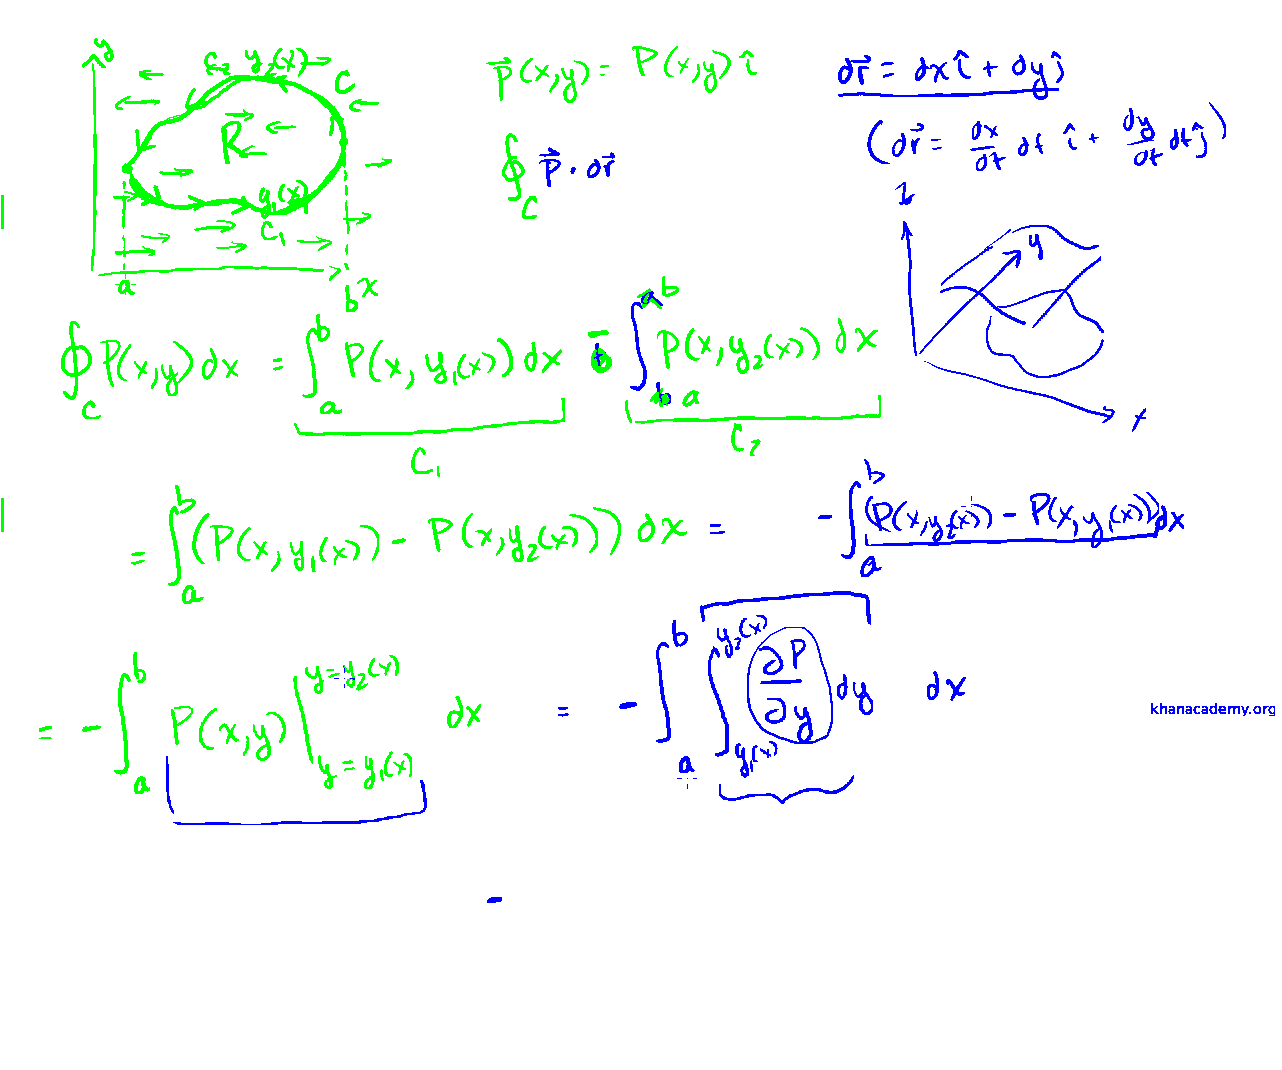 y
C₂ y₂(x)
C
R
y₁(x)
C₁
a
b x
p⃗(x,y) = P(x,y) î
∮_C p⃗ · dr⃗
dr⃗ = dx î + dy ĵ
(dr⃗ = dx/dt dt î + dy/dt dt ĵ)
z
y
x
∮_C P(x,y) dx = ∫_a^b P(x, y₁(x)) dx − ∫_a^b P(x, y₂(x)) dx
C₁ C₂
= ∫_a^b (P(x, y₁(x)) − P(x, y₂(x))) dx = − ∫_a^b (P(x, y₂(x)) − P(x, y₁(x))) dx
= − ∫_a^b P(x,y) |_{y = y₁(x)}^{y = y₂(x)} dx = − ∫_a^b ∫_{y₁(x)}^{y₂(x)} ∂P/∂y dy dx
khanacademy.org
−